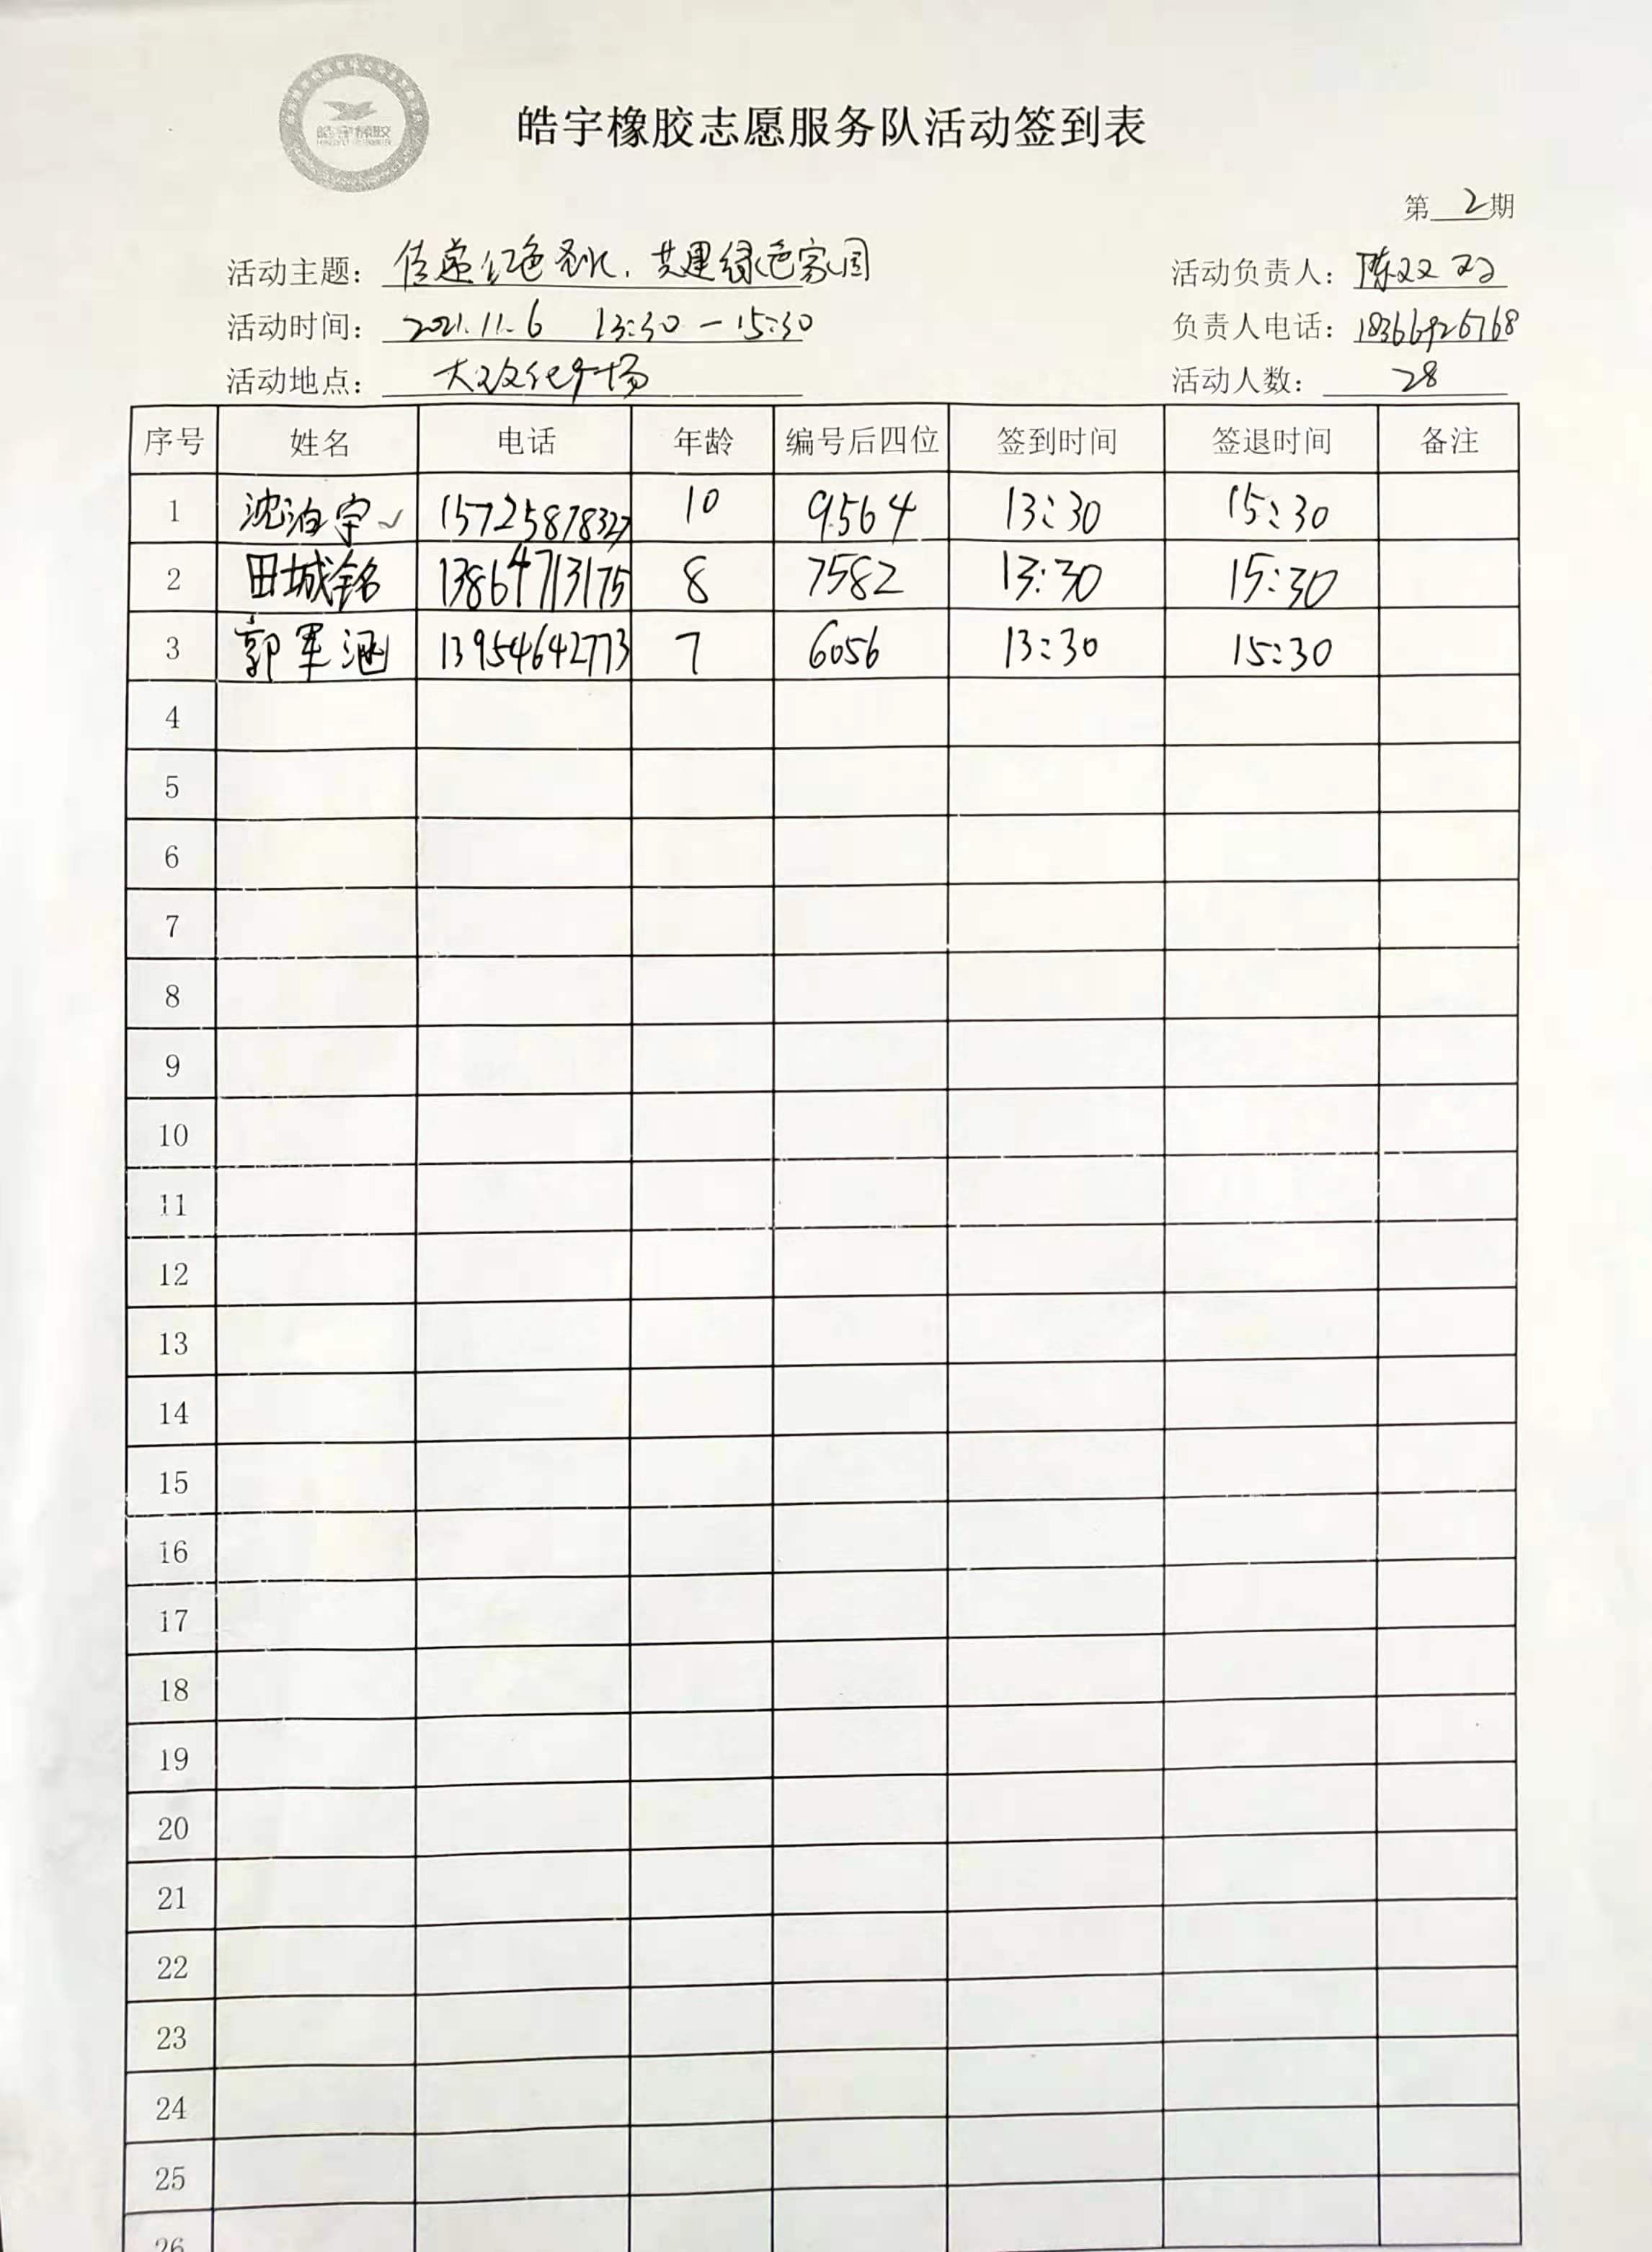 皓宇橡胶
皓宇橡胶志愿服务队活动签到表
第 2 期
活动主题: 传递红色圣火, 共建绿色家园
活动负责人: 陈双双
活动时间: 2021.11.6 13:30 — 15:30
负责人电话: 18366926768
活动地点: 大王文化广场
活动人数: 28
序号 姓名 电话 年龄 编号后四位 签到时间 签退时间 备注
1 沈泊宇 15725878327 10 9564 13:30 15:30
2 田城铭 13864713175 8 7582 13:30 15:30
3 郭军涵 13954642773 7 6056 13:30 15:30
4
5
6
7
8
9
10
11
12
13
14
15
16
17
18
19
20
21
22
23
24
25
26